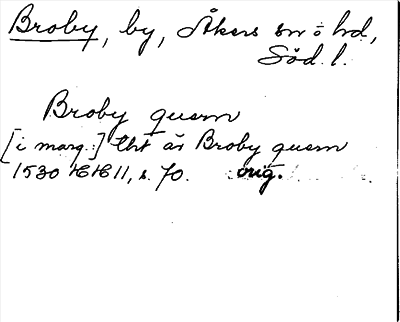 Broby, by, Åkers sn o hd,
Söd. l.
Broby quern
[i marg.] tht är Broby quern
1530 HH 11, s. 70. orig.